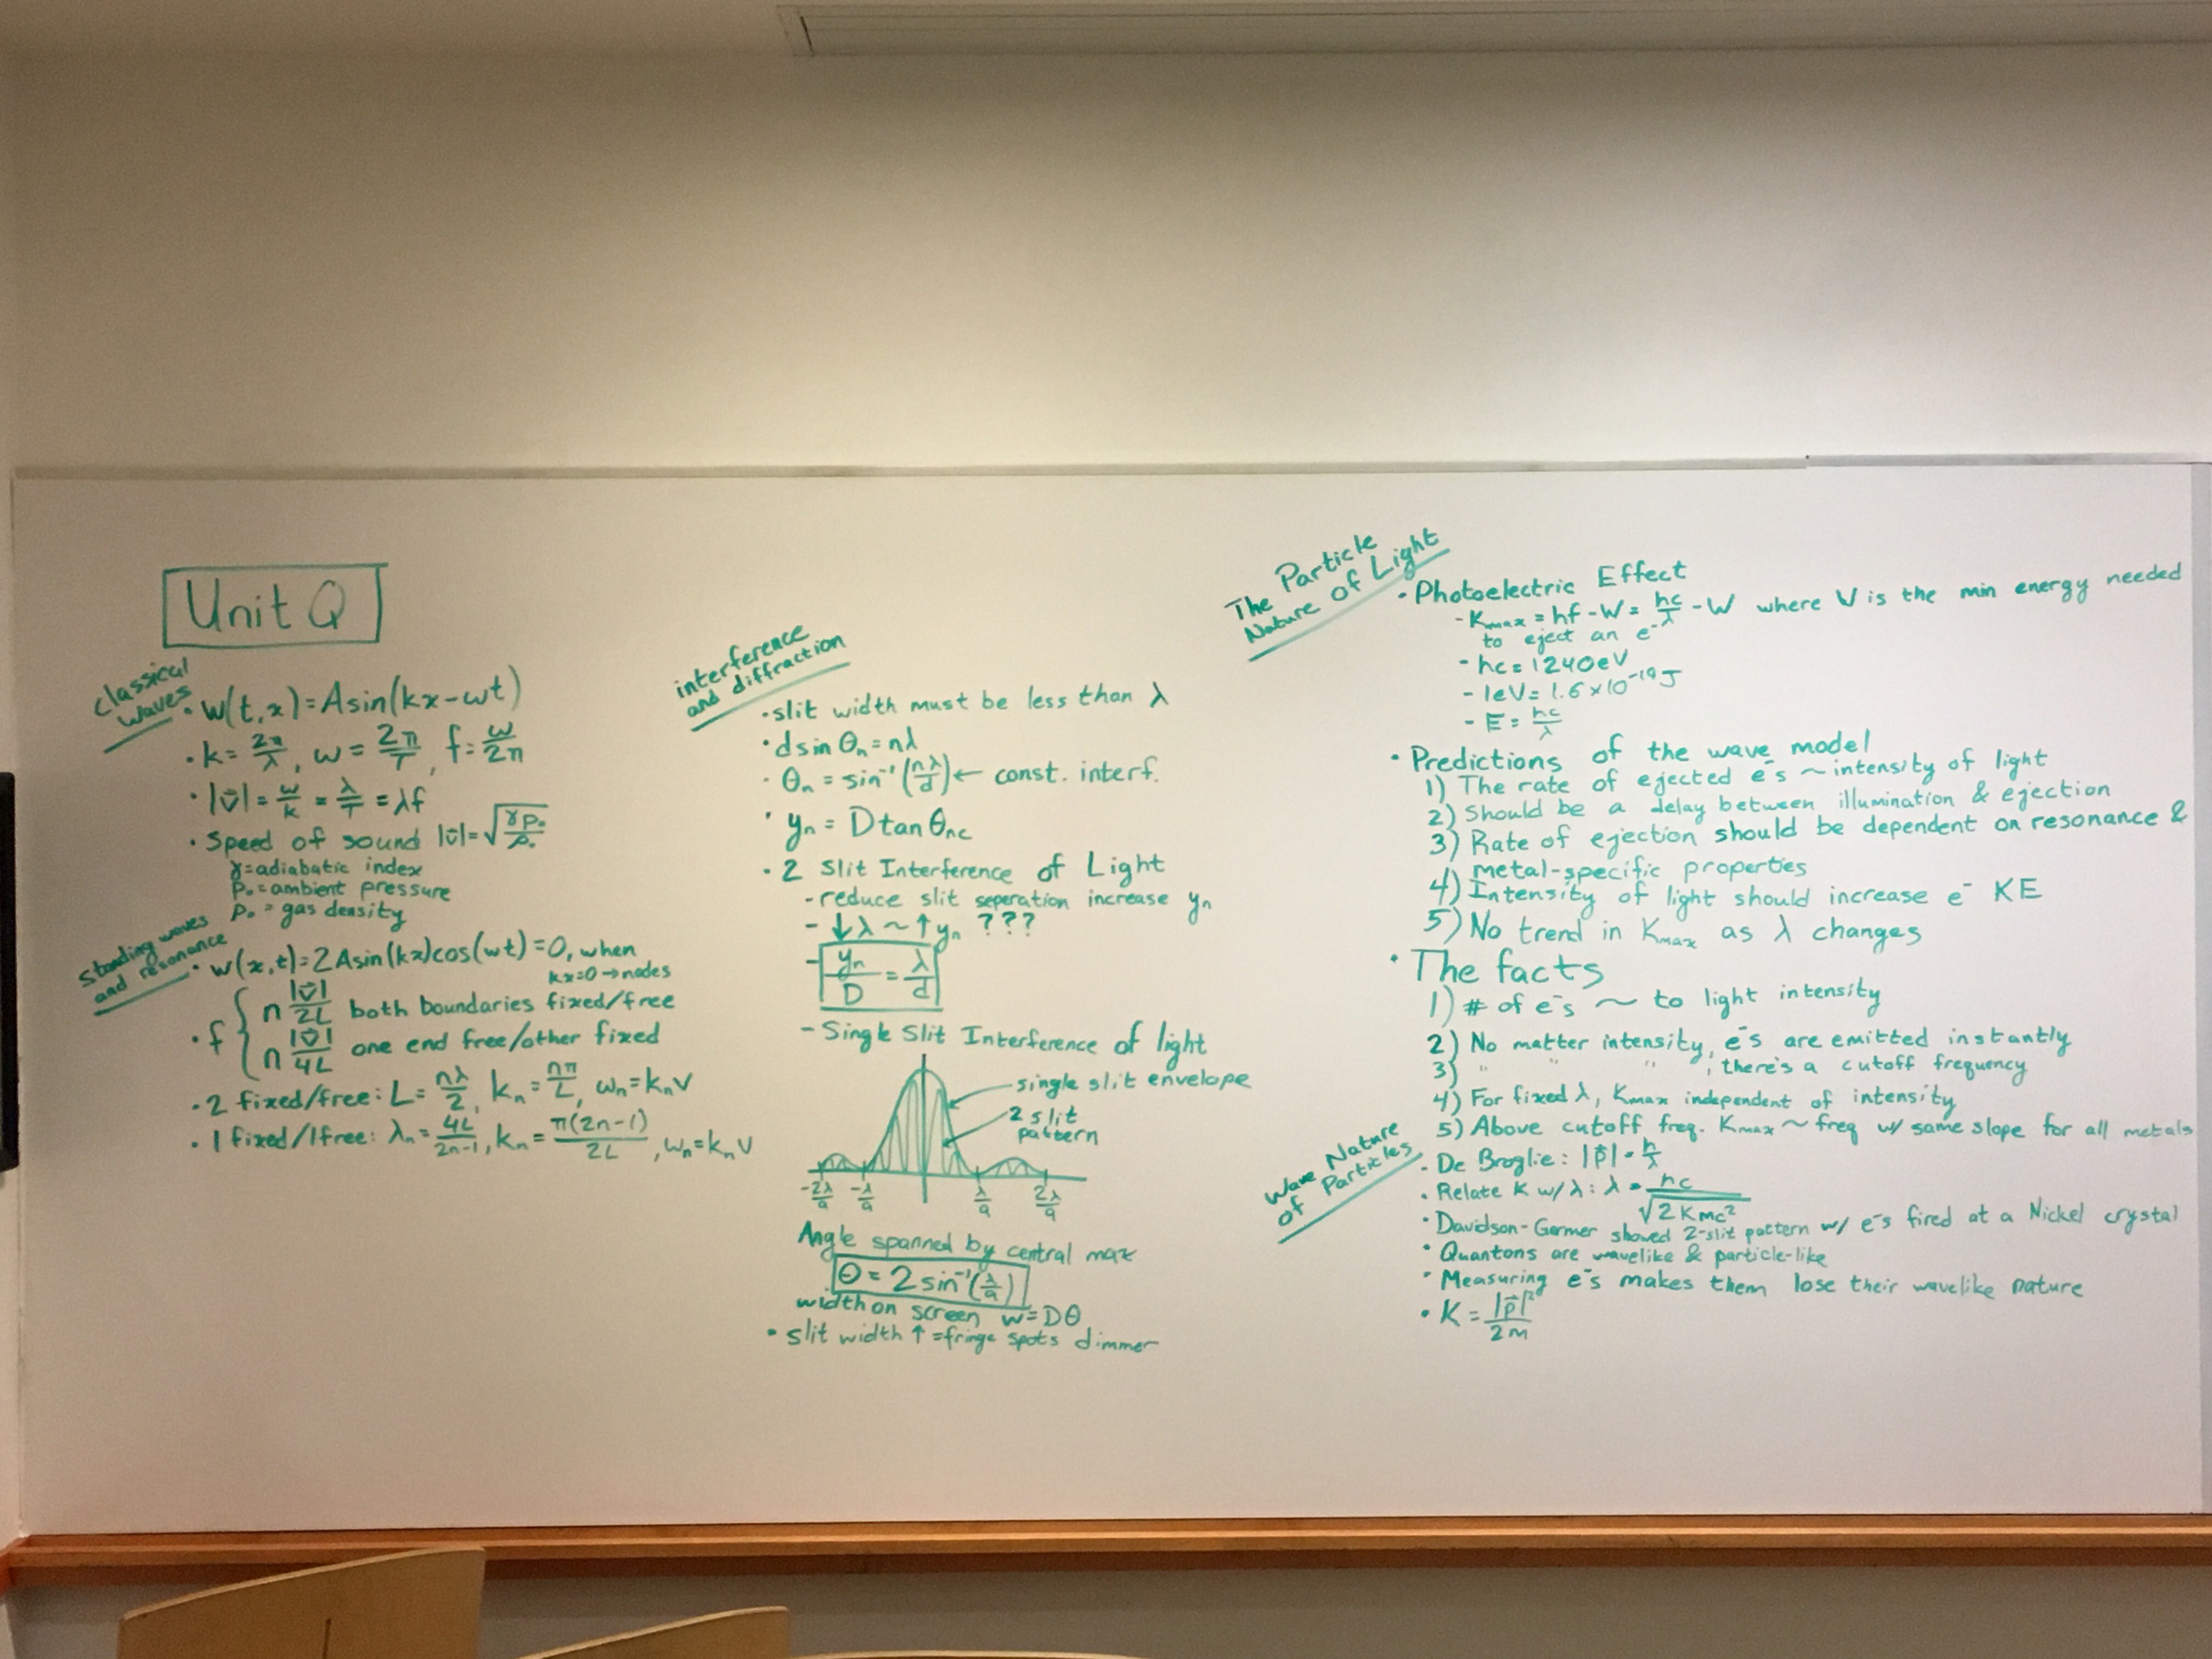 Unit Q
Classical
Waves
• w(t,x)=Asin(kx-ωt)
• k=2π/λ, ω=2π/T, f=ω/2π
• |v⃗|=ω/k=λ/T=λf
• Speed of sound |v⃗|=√(γp₀/ρ₀)
γ=adiabatic index
P₀=ambient pressure
ρ₀=gas density
Standing waves
and resonance
• w(x,t)=2Asin(kx)cos(wt)=0, when
kx=0→nodes
• f { n |v⃗|/2L both boundaries fixed/free
n |v⃗|/4L one end free/other fixed
• 2 fixed/free: L=nλ/2, kₙ=nπ/L, ωₙ=kₙv
• 1 fixed/1free: λₙ=4L/2n-1, kₙ=π(2n-1)/2L, ωₙ=kₙv
interference
and diffraction
• slit width must be less than λ
• dsin θₙ=nλ
• θₙ=sin⁻¹(nλ/d)← const. interf.
• yₙ=Dtanθnc
• 2 Slit Interference of Light
- reduce slit seperation increase yₙ
- ↓λ~↑yₙ ???
- yₙ/D=λ/d
- Single Slit Interference of light
single slit envelope
2 slit
pattern
-2λ/a -λ/a λ/a 2λ/a
Angle spanned by central max
θ=2sin⁻¹(λ/a)
width on screen w=Dθ
• slit width ↑=fringe spots dimmer
The Particle
Nature of Light
• Photoelectric Effect
- Kmax=hf-W=hc/λ-W where W is the min energy needed
to eject an e⁻
- hc=1240eV
- 1eV=1.6×10⁻¹⁹J
- E=hc/λ
• Predictions of the wave model
1) The rate of ejected e⁻s ~ intensity of light
2) Should be a delay between illumination & ejection
3) Rate of ejection should be dependent on resonance &
metal-specific properties
4) Intensity of light should increase e⁻ KE
5) No trend in Kmax as λ changes
• The facts
1) # of e⁻s ~ to light intensity
2) No matter intensity, e⁻s are emitted instantly
3) " " ", there's a cutoff frequency
4) For fixed λ, Kmax independent of intensity
5) Above cutoff freq. Kmax~freq w/ same slope for all metals
Wave Nature
of Particles
• De Broglie: |p⃗|=h/λ
• Relate K w/λ: λ=hc/√(2Kmc²)
• Davidson-Germer showed 2-slit pattern w/ e⁻s fired at a Nickel crystal
• Quantons are wavelike & particle-like
• Measuring e⁻s makes them lose their wavelike nature
• K=|p⃗|²/2m